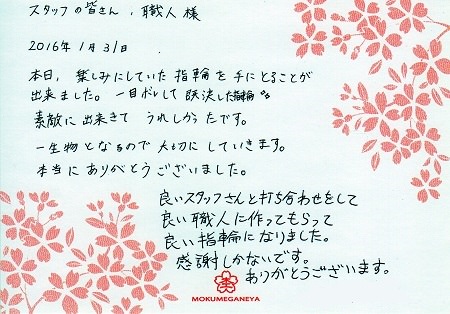 スタッフの皆さん、職人様
2016年1月31日
本日、楽しみにしていた指輪を手にとることが
出来ました。一目ボレして即決した指輪が
素敵に出来きて うれしかったです。
一生物となるので大切にしていきます。
本当にありがとうございました。
良いスタッフさんと打ち合わせをして
良い職人に作ってもらって
良い指輪になりました。
感謝しかないです。
ありがとうございます。
MOKUMEGANEYA